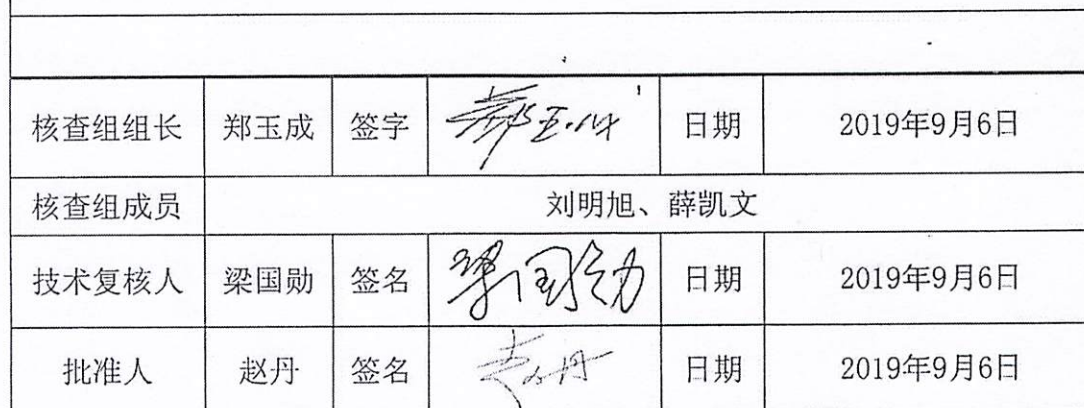 核查组组长 郑玉成 签字 郑玉成 日期 2019年9月6日
核查组成员 刘明旭、薛凯文
技术复核人 梁国勋 签名 梁国勋 日期 2019年9月6日
批准人 赵丹 签名 赵丹 日期 2019年9月6日